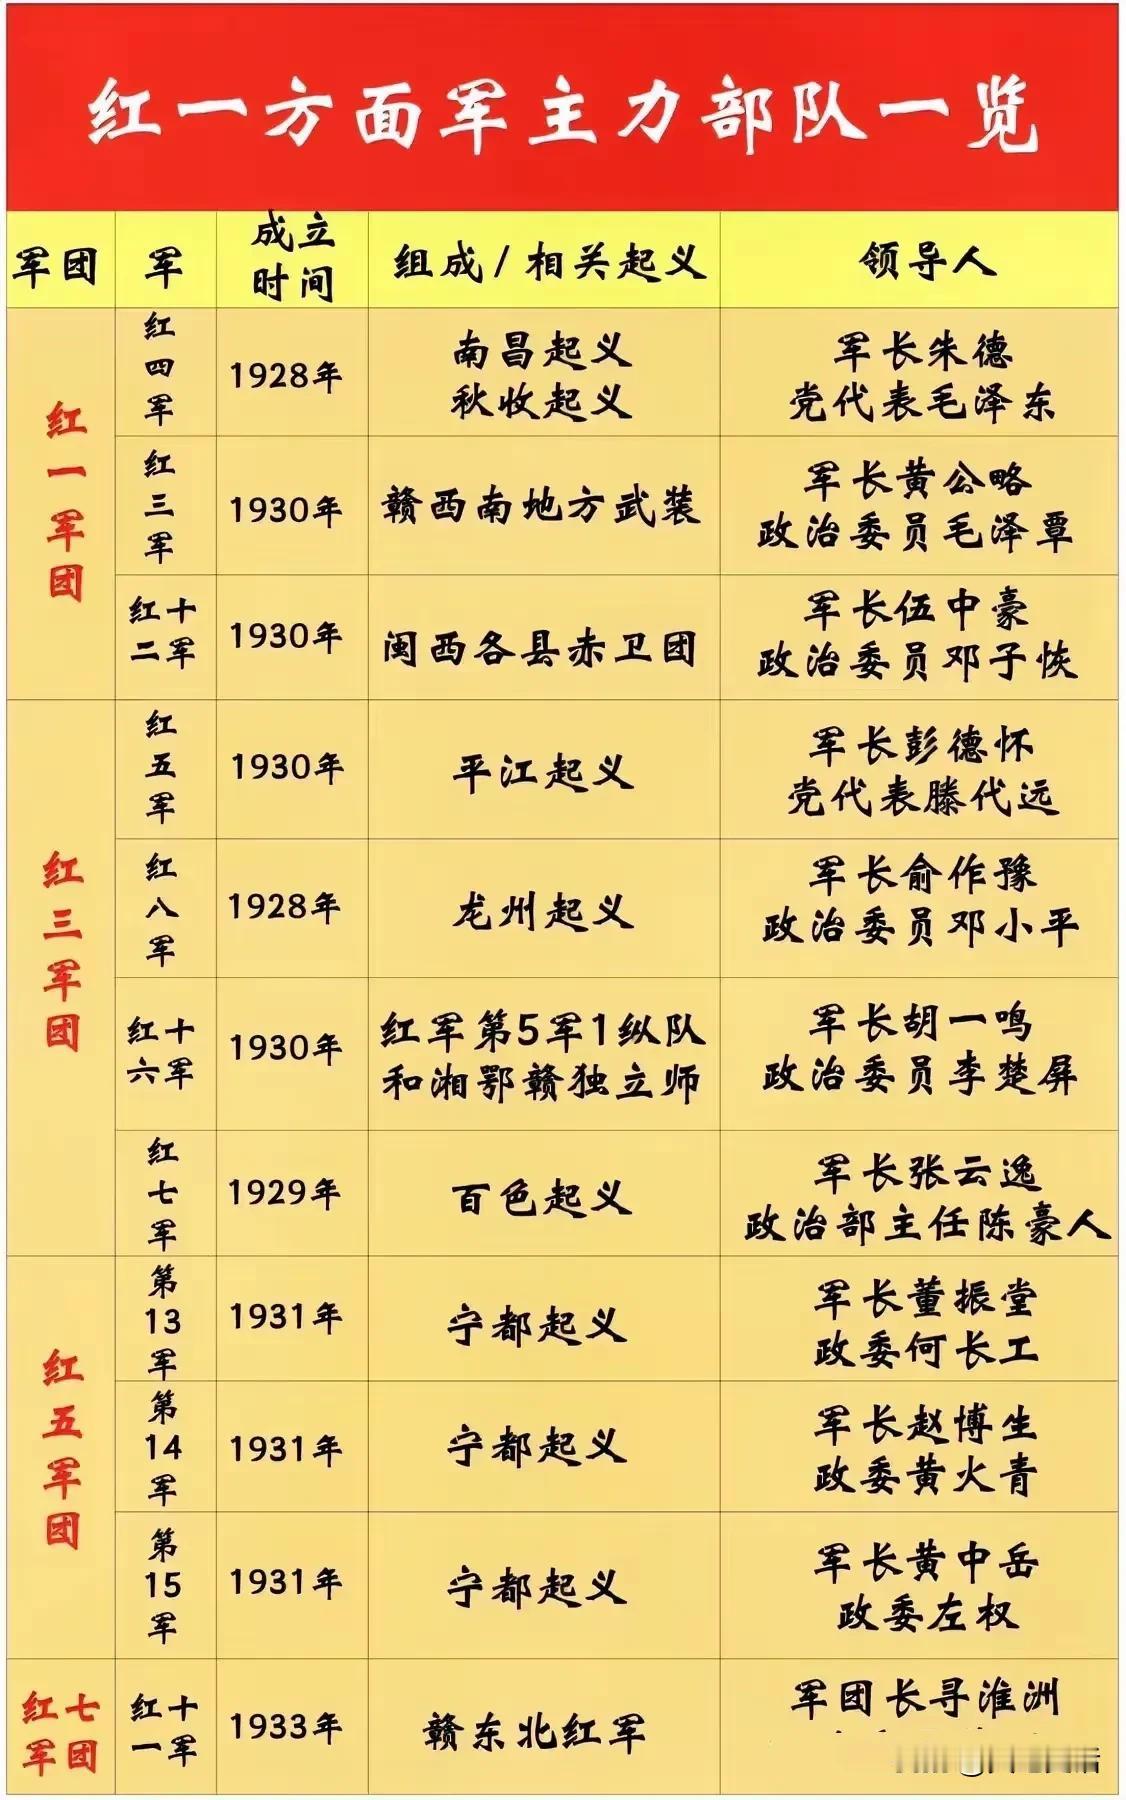 红一方面军主力部队一览
军团 军 成立时间 组成/相关起义 领导人
红一军团
红四军 1928年 南昌起义 秋收起义 军长朱德 党代表毛泽东
红三军 1930年 赣西南地方武装 军长黄公略 政治委员毛泽覃
红十二军 1930年 闽西各县赤卫团 军长伍中豪 政治委员邓子恢
红三军团
红五军 1930年 平江起义 军长彭德怀 党代表滕代远
红八军 1928年 龙州起义 军长俞作豫 政治委员邓小平
红十六军 1930年 红军第5军1纵队和湘鄂赣独立师 军长胡一鸣 政治委员李楚屏
红七军 1929年 百色起义 军长张云逸 政治部主任陈豪人
红五军团
第13军 1931年 宁都起义 军长董振堂 政委何长工
第14军 1931年 宁都起义 军长赵博生 政委黄火青
第15军 1931年 宁都起义 军长黄中岳 政委左权
红七军团
红十一军 1933年 赣东北红军 军团长寻淮洲